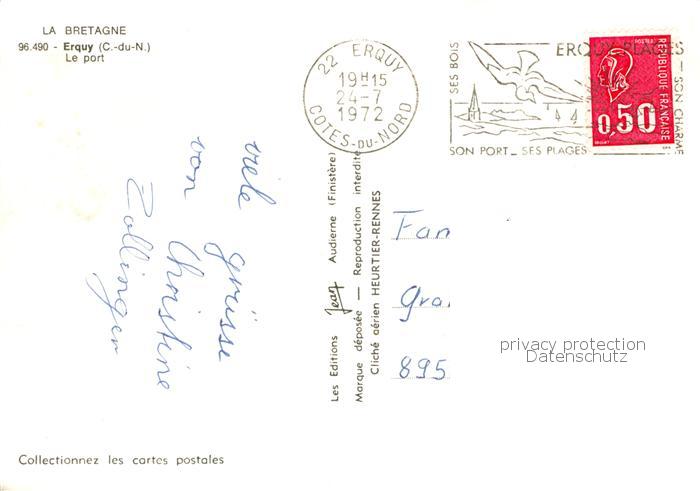 LA BRETAGNE
96.490 - Erquy (C.-du-N.)
Le port
22 ERQUY
19H15
24-7
1972
COTES-DU-NORD
SES BOIS
ERQUY PLAGES
SON CHARME
SON PORT _ SES PLAGES
POSTES
REPUBLIQUE FRANÇAISE
0,50
viele grüsse
von Christine
Zollinger
Les Editions Jean Audierne (Finistère)
Marque déposée — Reproduction interdite
Cliché aérien HEURTIER-RENNES
Fam
Gra
895
privacy protection
Datenschutz
Collectionnez les cartes postales